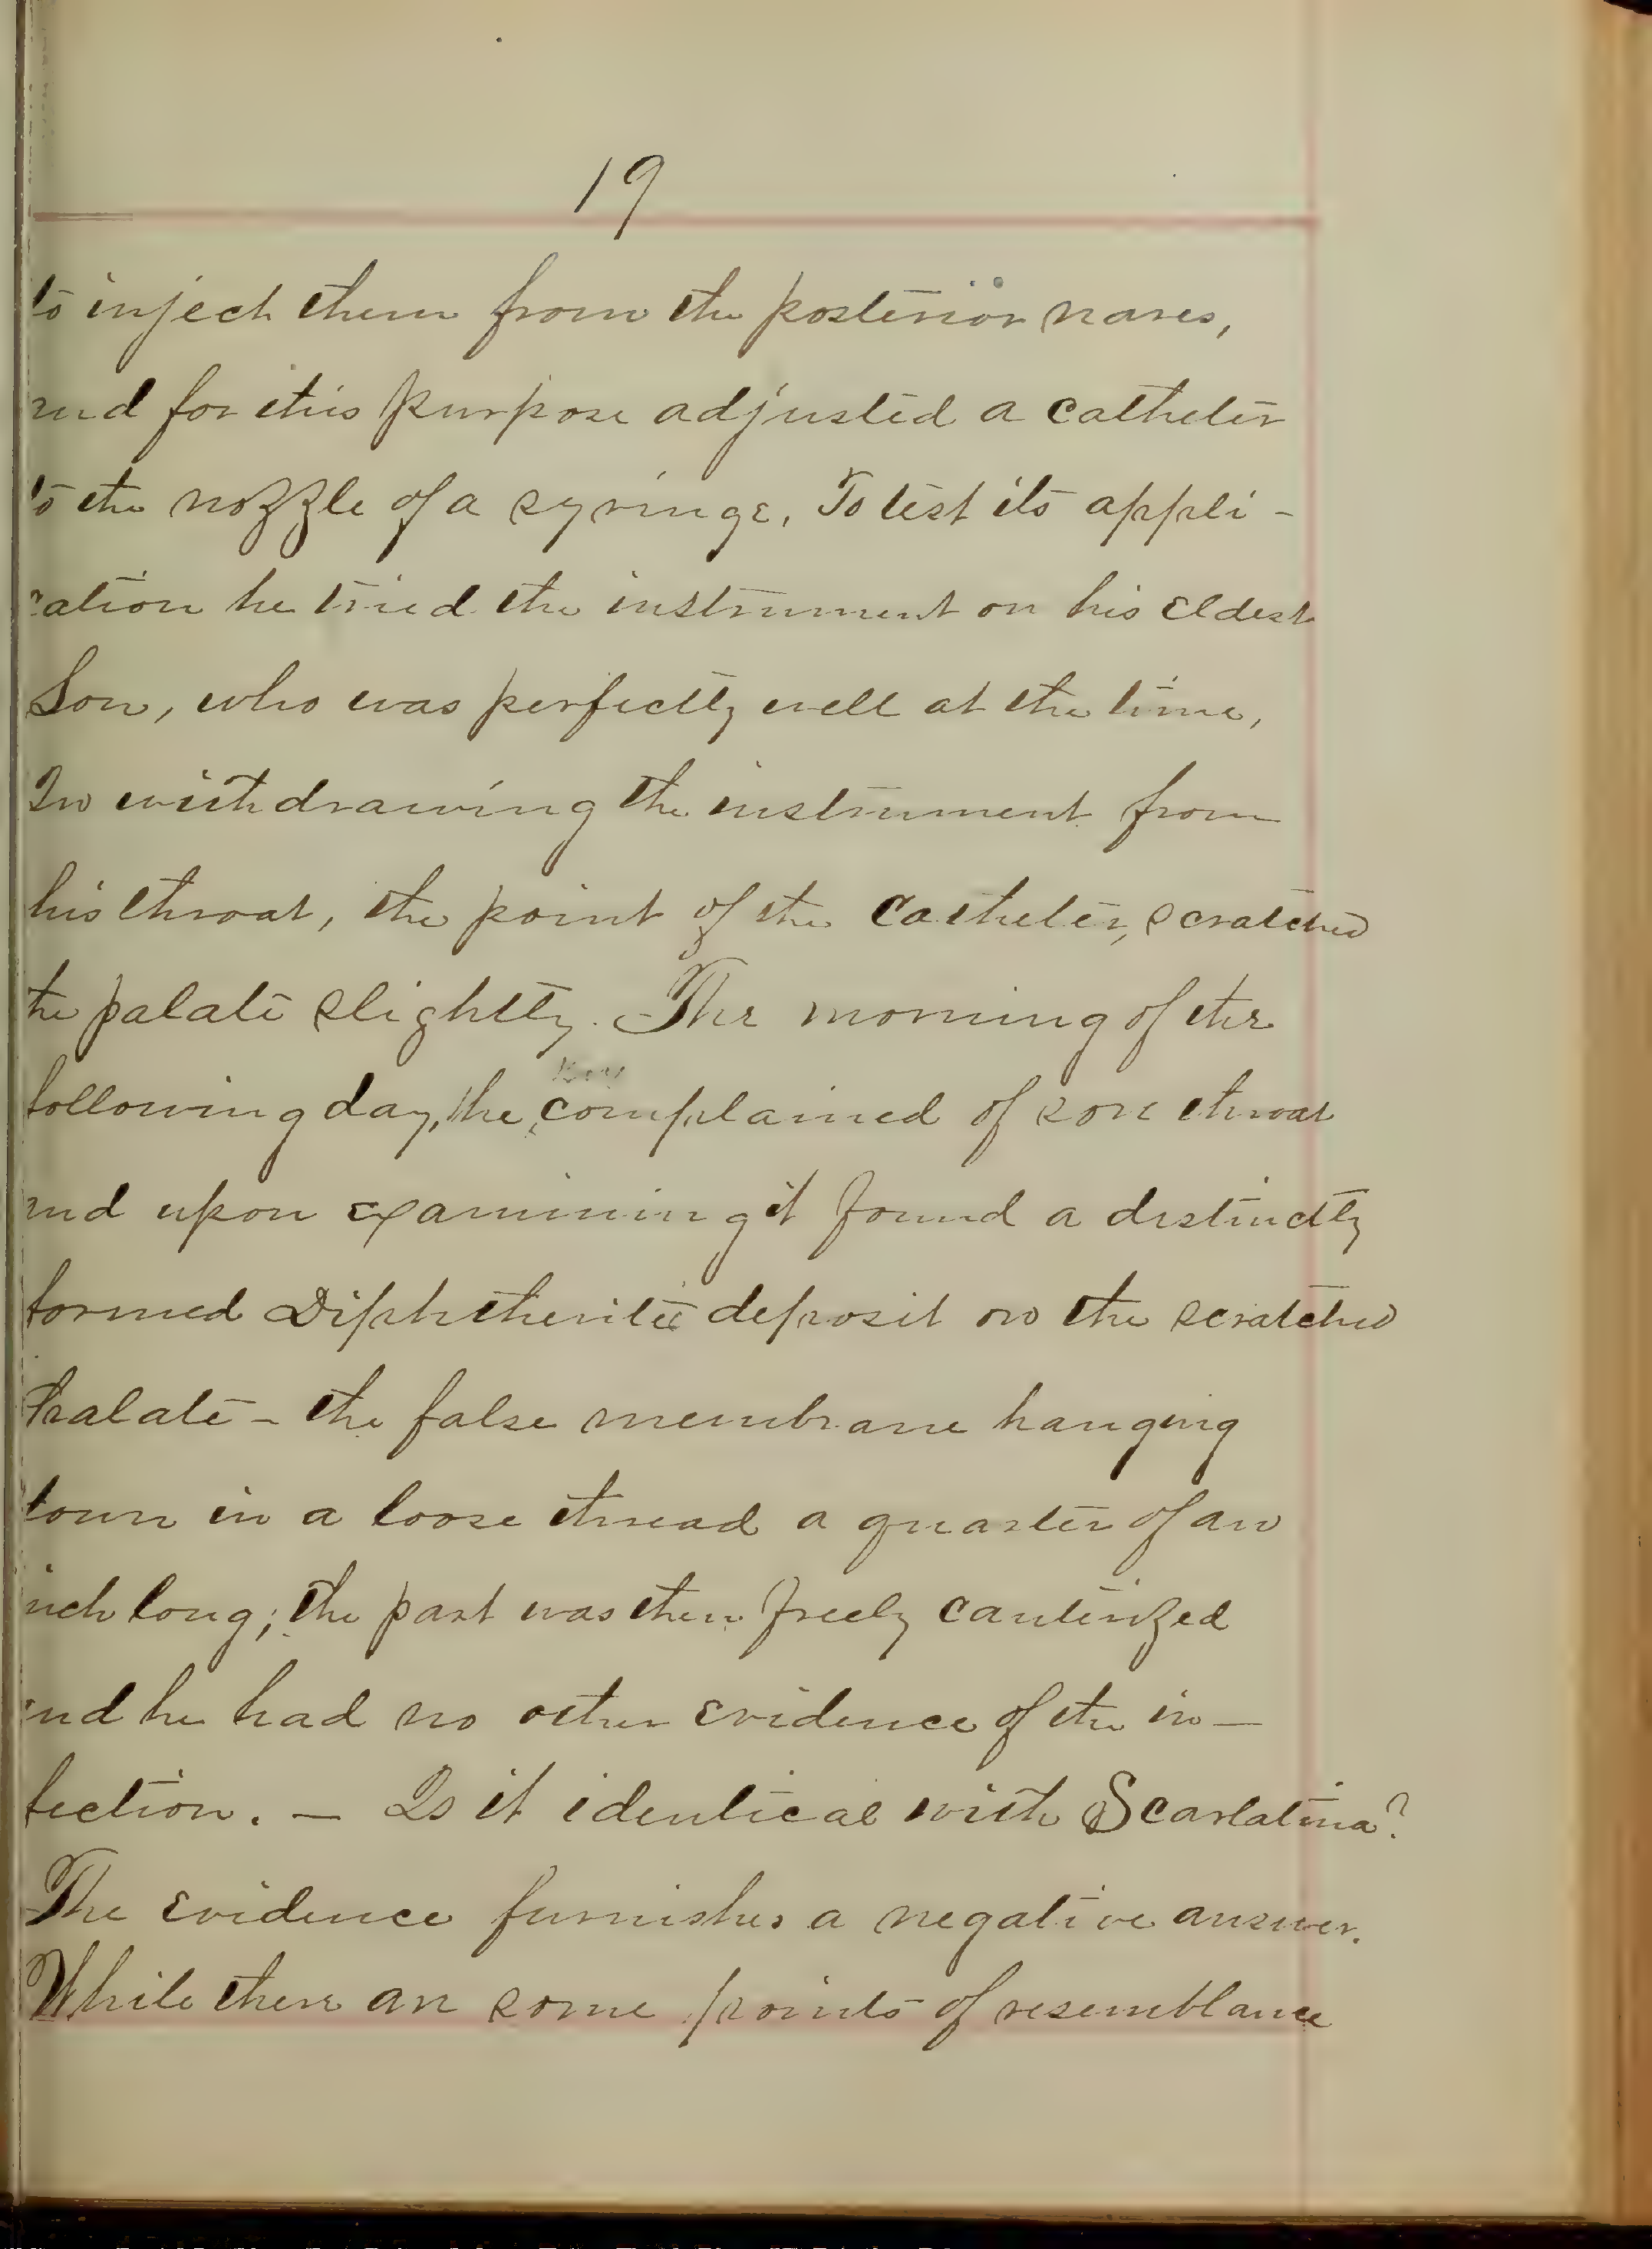 19
to inject them from the posterior nares,
and for this purpose adjusted a catheter
to the nozzle of a syringe. To test its appli-
cation he tried the instrument on his eldest
Son, who was perfectly well at the time,
In withdrawing the instrument from
his throat, the point of the Catheter, scratched
the palate slightly. The morning of the
following day, the boy complained of sore throat
and upon examining it found a distinctly
formed Diphtheritic deposit on the scratched
Palate - the false membrane hanging
down in a loose thread a quarter of an
inch long; the part was then freely cauterized
and he had no other evidence of the in-
fection. - Is it identical with Scarlatina?
The evidence furnishes a negative answer.
While there are some points of resemblance